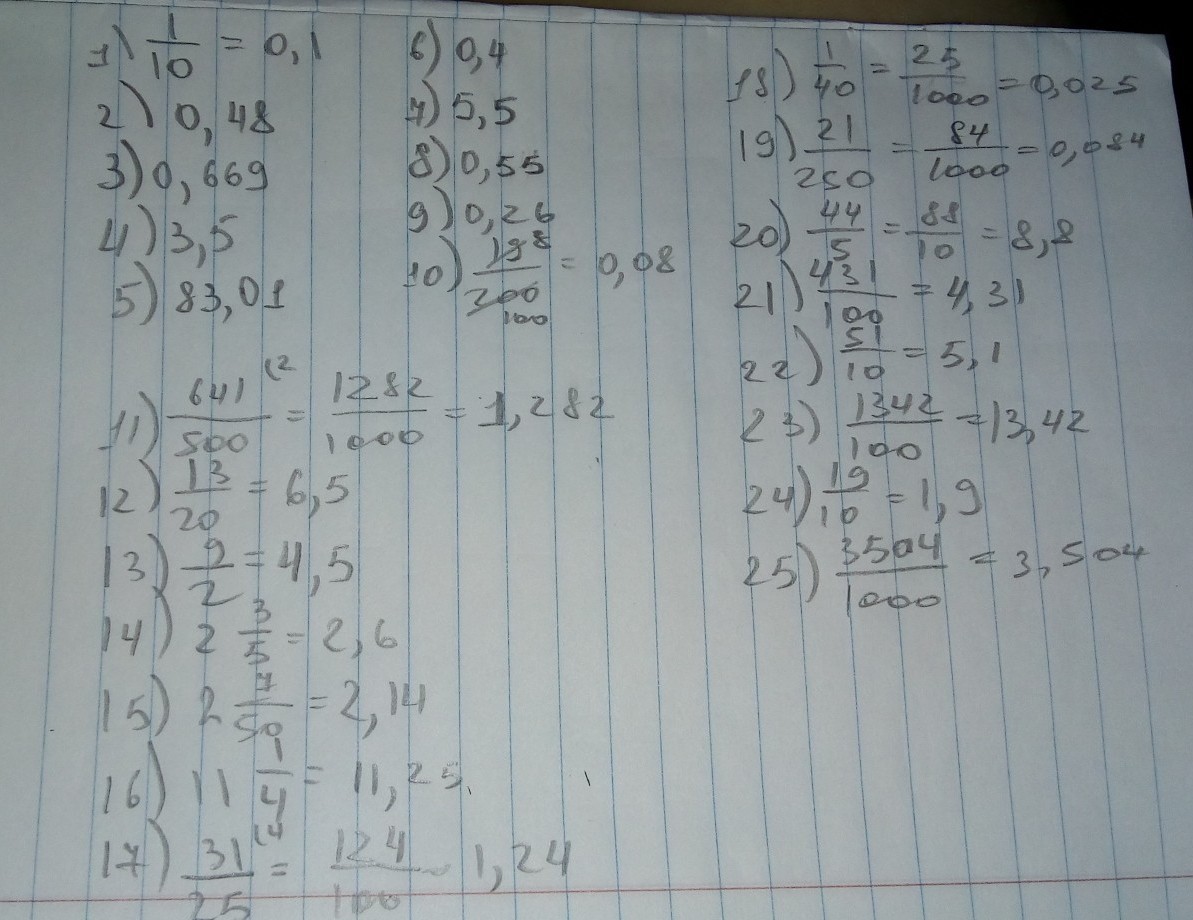 1) 1/10 = 0,1
2) 0,48
3) 0,669
4) 3,5
5) 83,01
6) 0,4
7) 5,5
8) 0,55
9) 0,26
10) 8/100 = 0,08
11) 641/500 (2 = 1282/1000 = 1,282
12) 13/20 = 6,5
13) 9/2 = 4,5
14) 2 3/5 = 2,6
15) 2 7/50 = 2,14
16) 11 1/4 = 11,25
17) 31/25 (4 = 124/100 = 1,24
18) 1/40 = 25/1000 = 0,025
19) 21/250 = 84/1000 = 0,084
20) 44/5 = 88/10 = 8,8
21) 431/100 = 4,31
22) 51/10 = 5,1
23) 1342/100 = 13,42
24) 19/10 = 1,9
25) 3504/1000 = 3,504